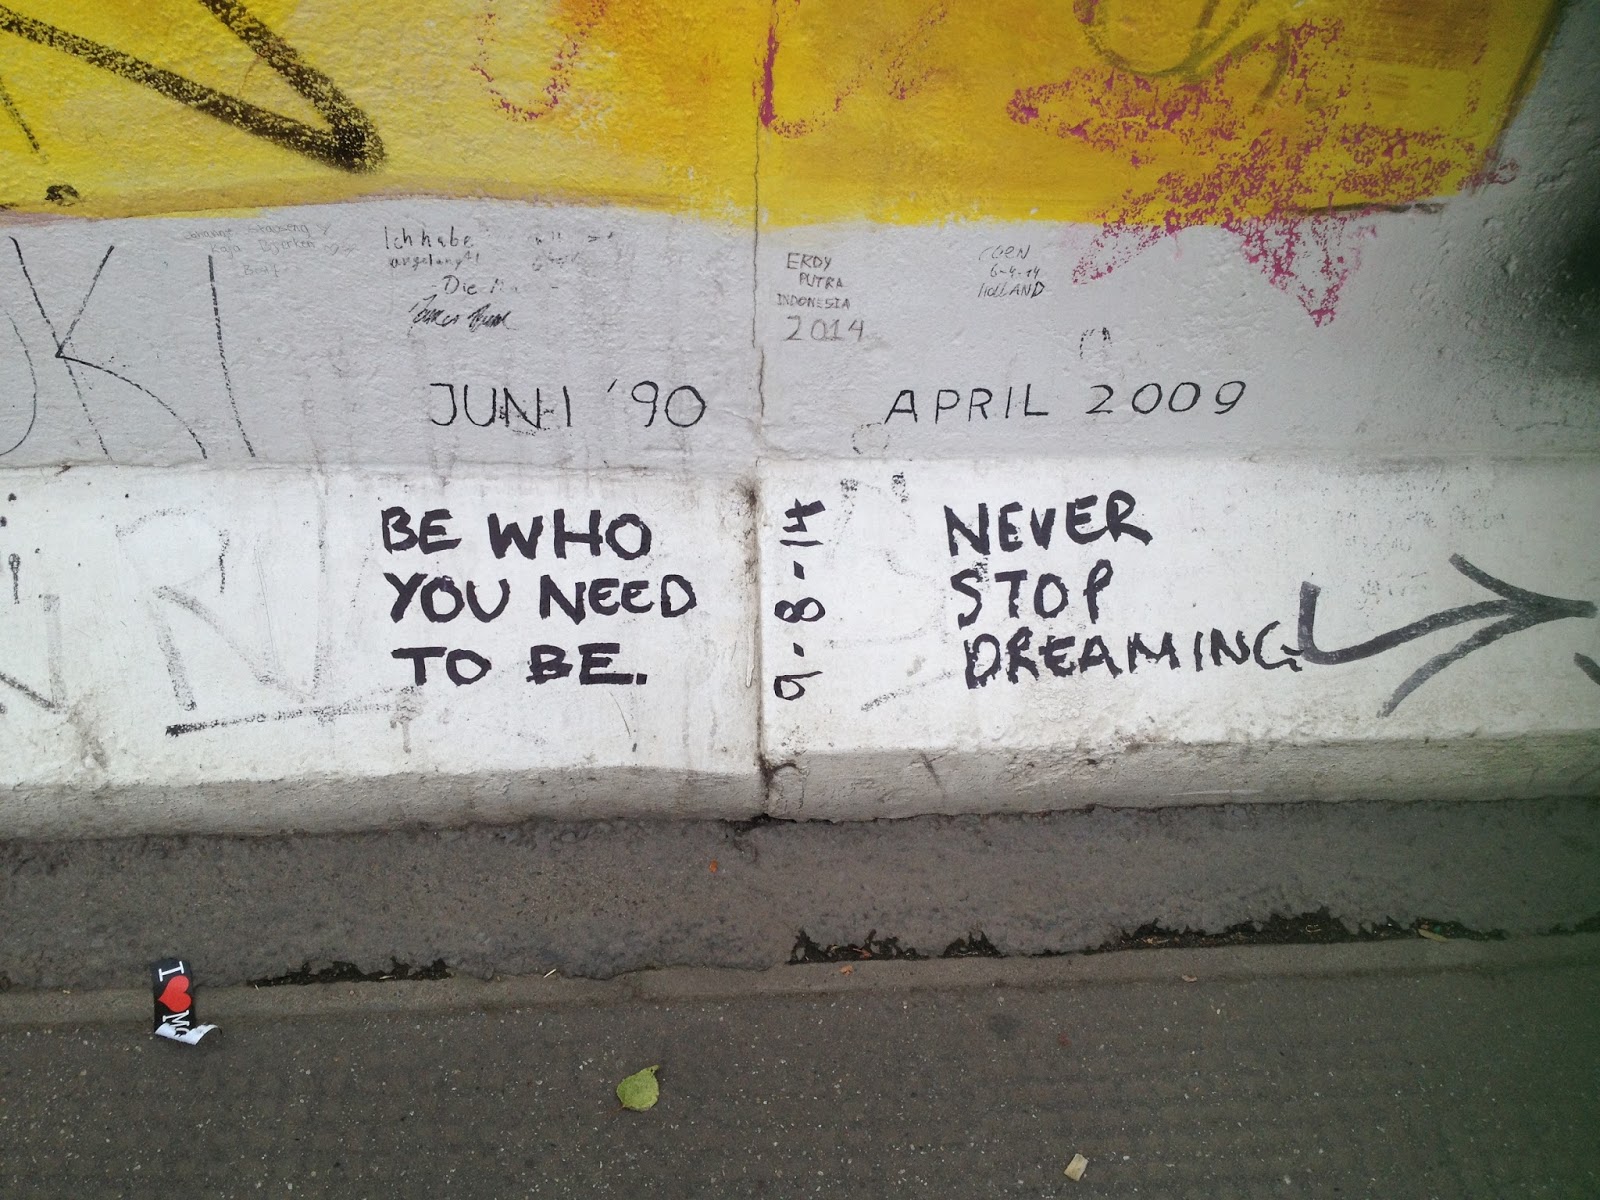 Ich habe
Die
ERDY
PUTRA
INDONESIA
2014
COEN
6-4-14
HOLLAND
UKI
JUNI '90
APRIL 2009
BE WHO
YOU NEED
TO BE.
9-8-14
NEVER
STOP
DREAMING
I ❤